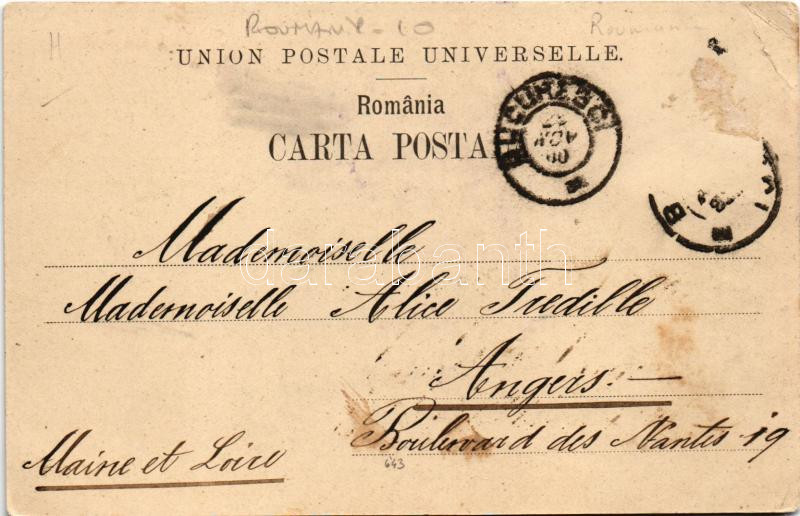 ROUMANY - 10
Roumanie
H
UNION POSTALE UNIVERSELLE.
România
CARTA POSTA
BUCURESCI
NOV
00
B
Mademoiselle
Mademoiselle Alice Tredille
Angers.—
Boulevard des Nantes 19
Maine et Loire
643
darabanth